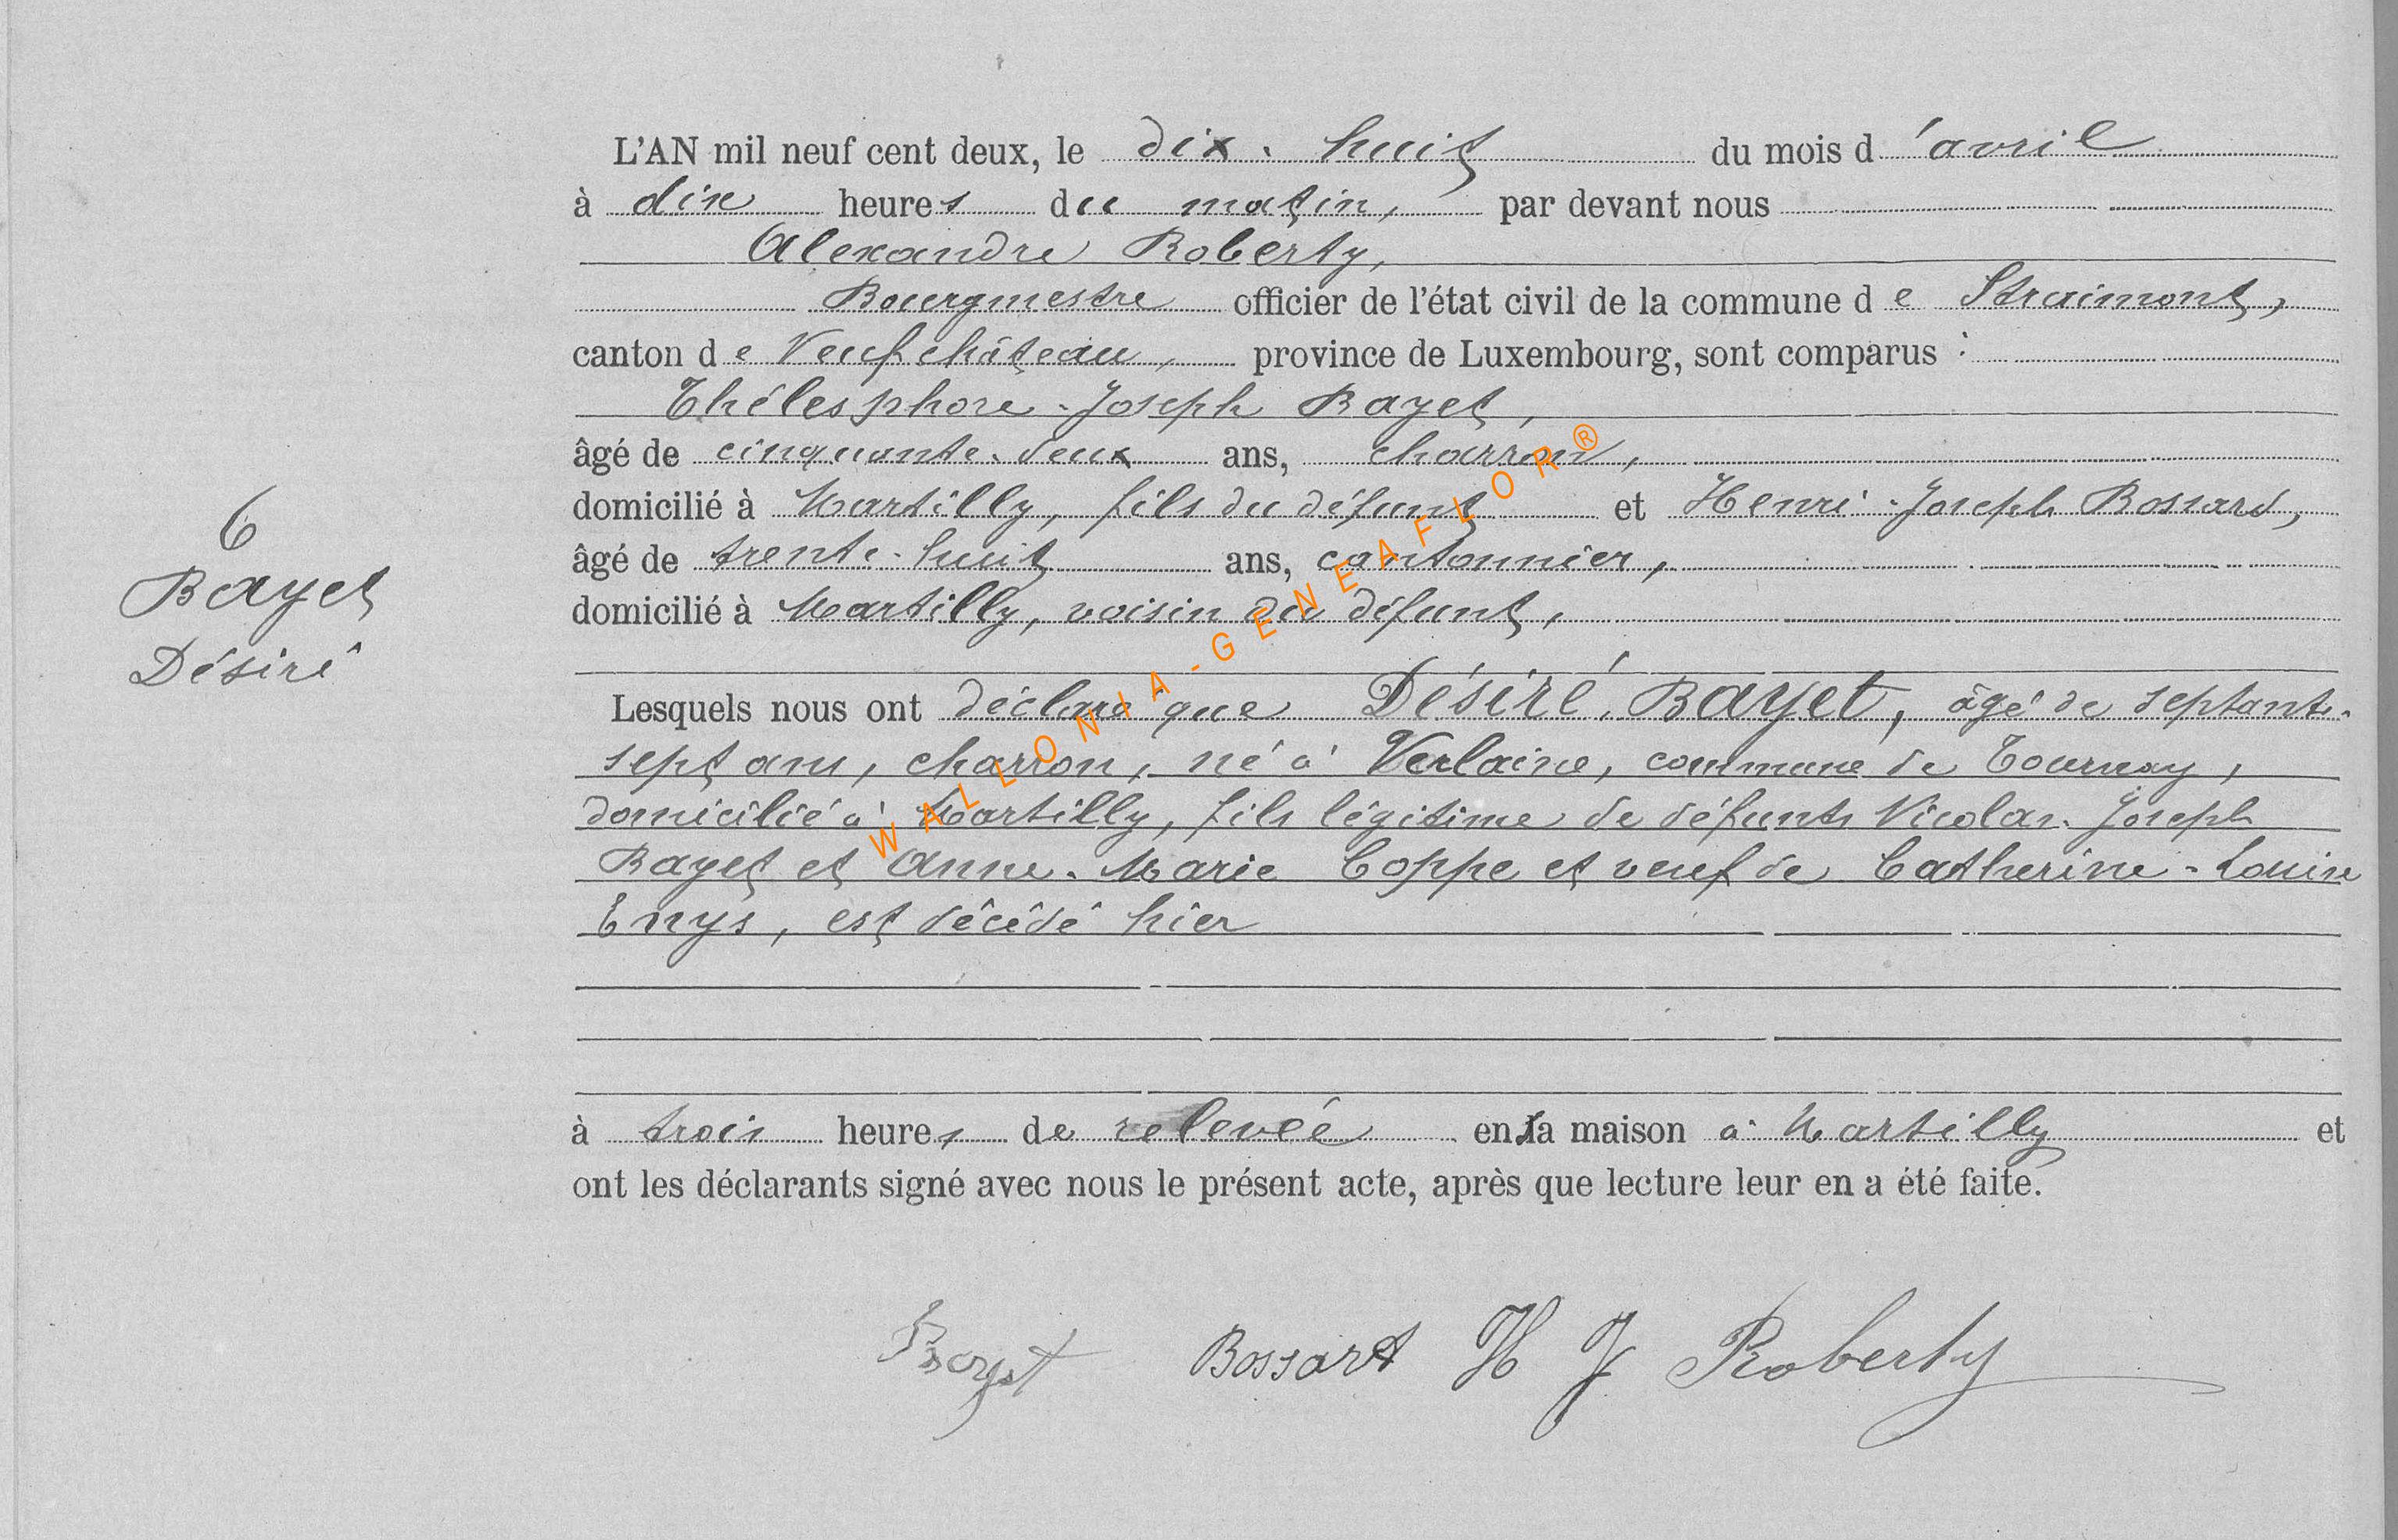 L'AN mil neuf cent deux, le dix-huit du mois d'avril
à dix heures du matin, par devant nous
Alexandre Roberty,
Bourgmestre officier de l'état civil de la commune de Straimont,
canton de Neufchâteau, province de Luxembourg, sont comparus :
Thélesphore-Joseph Bayet,
âgé de cinquante-deux ans, charron,
domicilié à Martilly, fils du défunt et Henri-Joseph Bossard,
âgé de trente-huit ans, cantonnier,
domicilié à Martilly, voisin du défunt,
6
Bayet
Désiré
Lesquels nous ont déclaré que Désiré Bayet, âgé de septante-
sept ans, charron, né à Verlaine, commune de Tournay,
domicilié à Martilly, fils légitime de défunts Nicolas-Joseph
Bayet et Anne-Marie Coppe et veuf de Catherine-Louise
Enys, est décédé hier
à trois heures de relevée en sa maison à Martilly et
ont les déclarants signé avec nous le présent acte, après que lecture leur en a été faite.
Bayet Bossart H J Roberty
WALLONIA-GENEAFLOR®